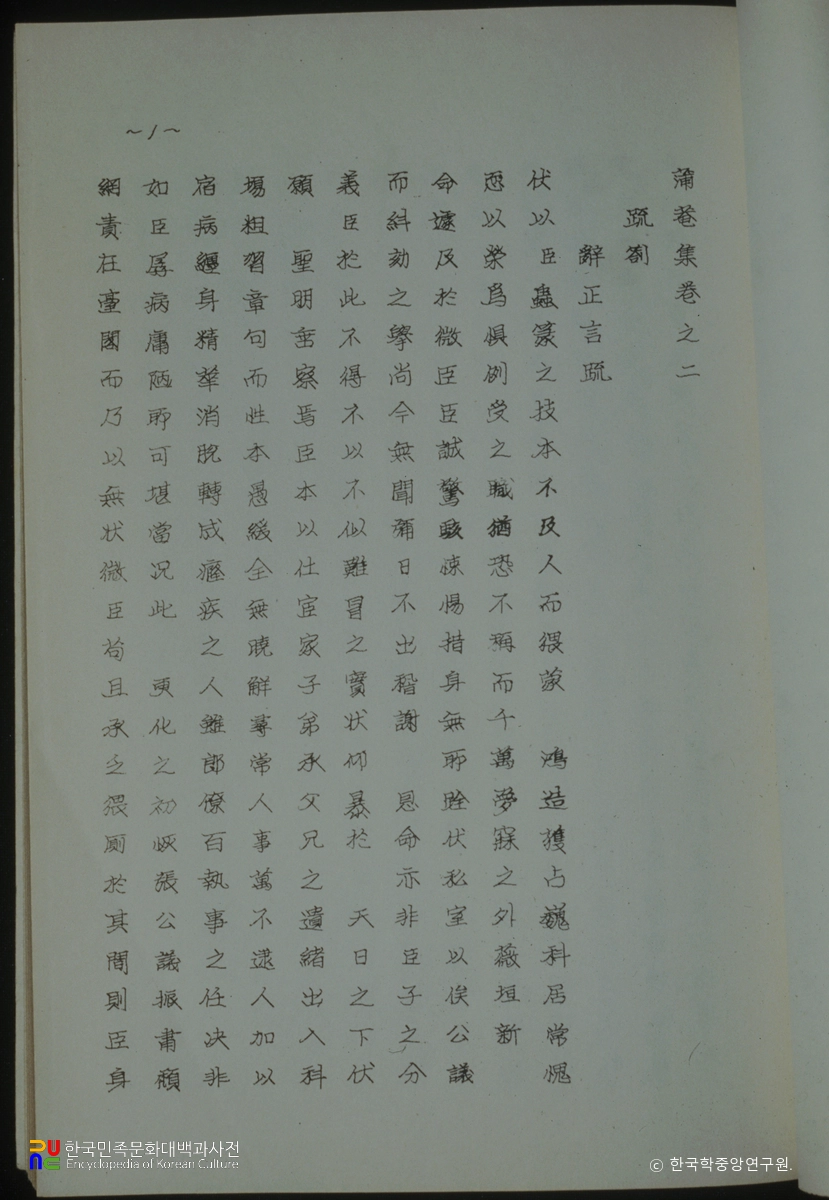 ~1~
蒲菴集卷之二
疏劄
辭正言疏
伏以臣蟲篆之技本不及人而猥蒙 鴻造獲占巍科居常愧
恧以榮爲懼例受之職猶恐不稱而千萬夢寐之外薇垣新
命遽及於微臣臣誠驚駭悚惕措身無所跧伏私室以俟公議
而糾劾之擧尙今無聞彌日不出稽謝 恩命亦非臣子之分
義臣於此不得不以不似難冒之實状仰暴於 天日之下伏
願 聖明垂察焉臣本以仕宦家子弟承父兄之遺緖出入科
場粗習章句而性本愚緩全無曉解尋常人事萬不逮人加以
宿病纏身精華消脫轉成癃疾之人雖郎僚百執事之任决非
如臣孱病庸陋所可堪當况此 更化之初恢張公議振肅頹
綱責在臺閣而乃以無状微臣苟且承乏猥厠於其間則臣身
한국민족문화대백과사전
Encyclopedia of Korean Culture
© 한국학중앙연구원.